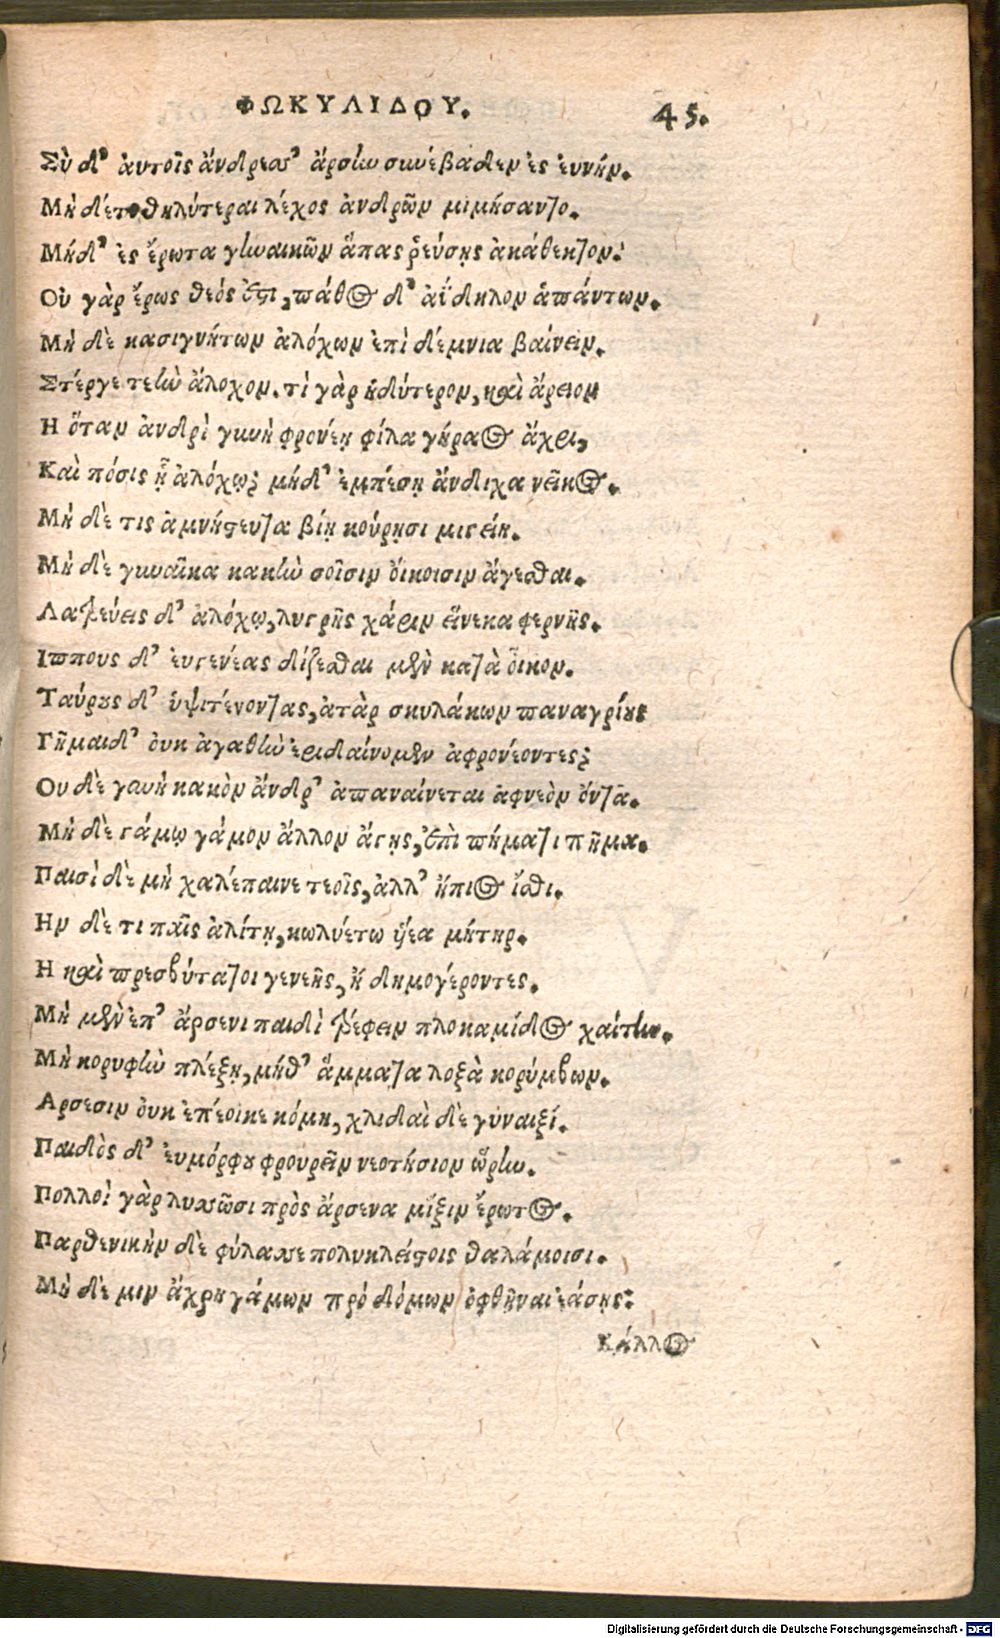 ΦΩΚΥΛΙΔΟΥ. 45.
Σὺ δ' ἀυτοῖς ἄνδρεσσ' ἄρσην συνέβαδεν ἐς ἐυνήν.
Μὴ δέτοθηλύτεραι λέχος ἀνδρῶν μιμήσαντο.
Μήδ' ἐς ἔρωτα γυναικῶν ἅπας ῥεύσῃς ἀκάθεκτον:
Οὐ γὰρ ἔρως θεός ἐστι, πάθος δ' ἀΐδηλον ἁπάντων.
Μὴ δὲ κασιγνήτων ἀλόχων ἐπὶ δέμνια βαίνειν.
Στέργε τεὴν ἄλοχον. τί γὰρ ἡδύτερον, καὶ ἄρειον
Η ὅταν ἀνδρὶ γυνὴ φρονέῃ φίλα γήραος ἄχρι,
Καὶ πόσις ᾗ ἀλόχῳ; μήδ' ἐμπέσῃ ἄνδιχα νεῖκος.
Μὴ δὲ τις ἀμνήστευτα βίῃ κούρῃσι μιγείη.
Μὴ δὲ γυναῖκα κακὴν σοῖσιν ὄικοισιν ἄγεσθαι.
Λατρεύεις δ' ἀλόχῳ, λυγρῆς χάριν εἵνεκα φερνῆς.
Ιππους δ' ἐυγενέας δίζεσθαι μὲν κατὰ οἶκον.
Ταύρους δ' ὑψιτένοντας, ἀτὰρ σκυλάκων παναγρίους
Γῆμαιδ' ὀυκ ἀγαθὴν ἐριδαίνομεν ἀφρονέοντες;
Ου δὲ γυνὴ κακὸν ἄνδρ' ἀπαναίνεται ἀφνεὸν ὄντα.
Μὴ δὲ γάμῳ γάμον ἄλλον ἄγῃς, ἐπὶ πήματι πῆμα.
Παισὶ δὲ μὴ χαλέπαινε τεοῖς, ἀλλ' ἤπιος ἴσθι.
Ην δὲ τι παῖς ἀλίτῃ, κωλυέτω ὑέα μήτηρ.
Η καὶ πρεσβύτατοι γενεῆς, ἢ δημογέροντες.
Μὴ μὲν ἐπ' ἄρσενι παιδὶ τρέφειν πλοκαμίδος χαίτην.
Μὴ κορυφὴν πλέξῃ, μήθ' ἅμματα λοξὰ κορύμβων.
Αρσεσιν ὀυκ ἐπέοικε κόμη, χλιδαὶ δὲ γύναιξί.
Παιδὸς δ' ἐυμόρφου φρουρεῖν νεοτήσιον ὥρην.
Πολλοὶ γὰρ λυσσῶσι πρὸς ἄρσενα μίξιν ἔρωτος.
Παρθενικὴν δὲ φύλασσε πολυκλείστοις θαλάμοισι.
Μὴ δὲ μιν ἄχρη γάμων πρό δόμων ὀφθῆναι ἐάσῃς:
Κάλλος
Digitalisierung gefördert durch die Deutsche Forschungsgemeinschaft - DFG